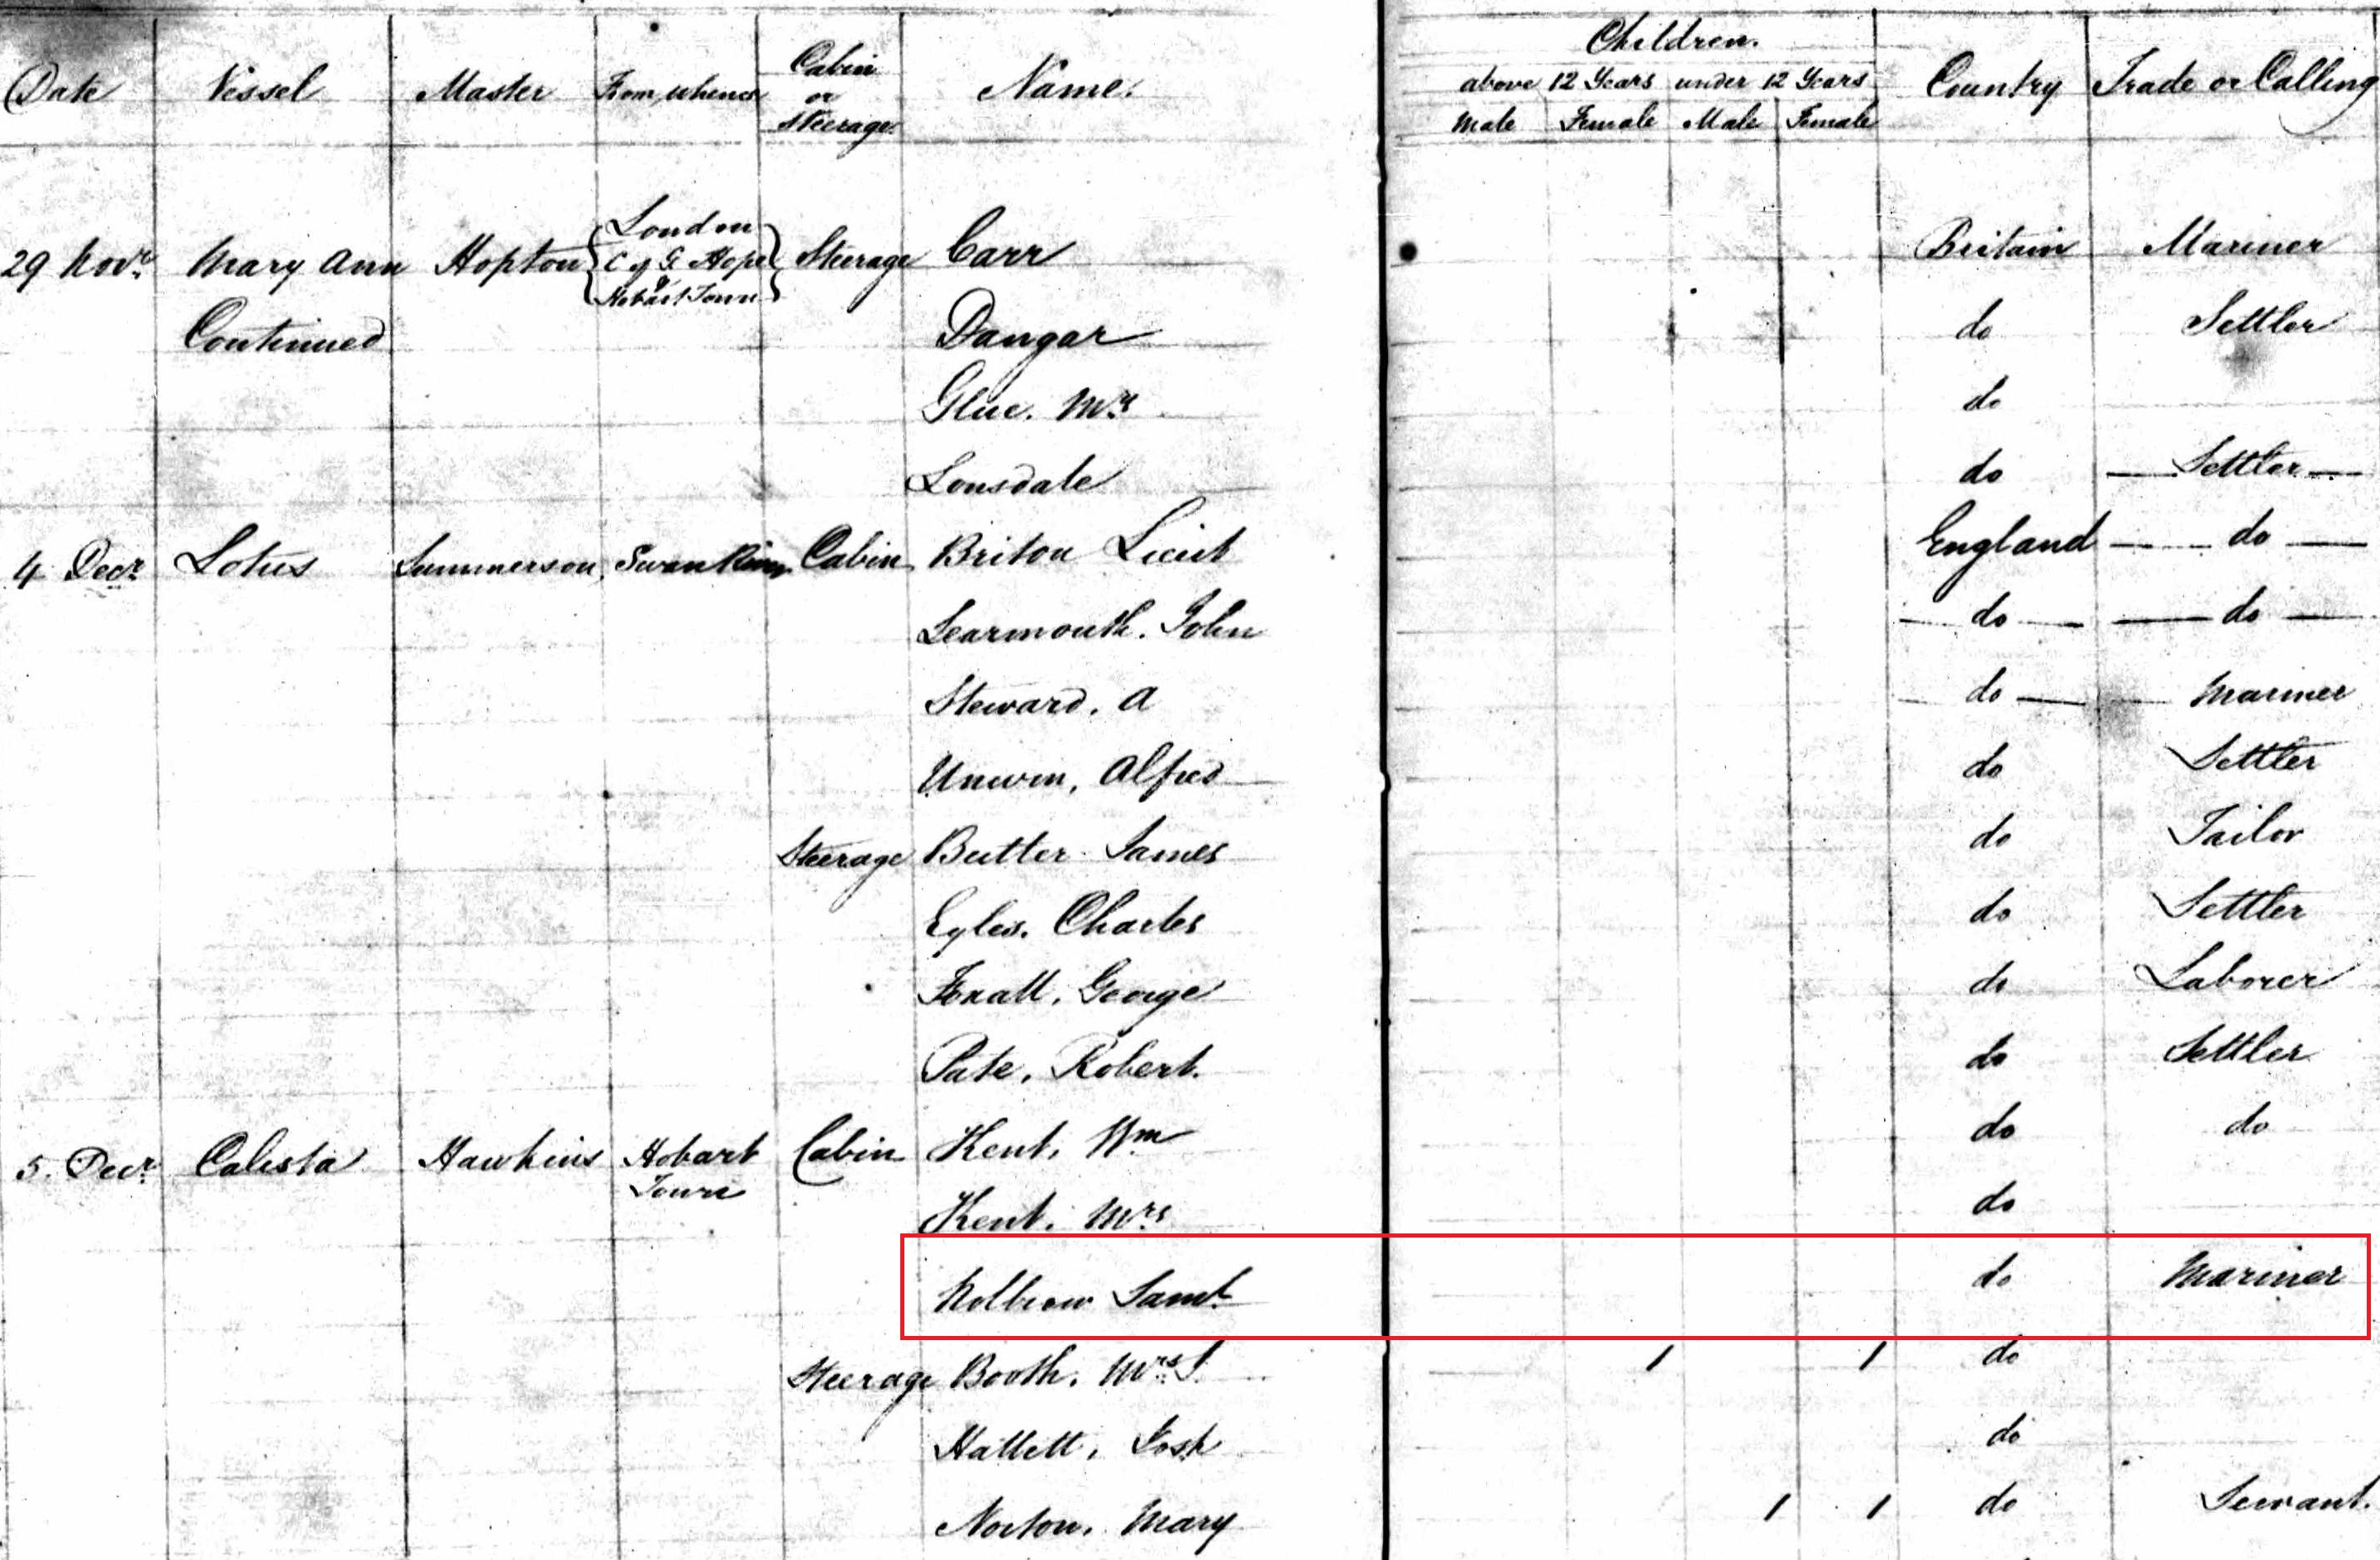 Date Vessel Master From whence Cabin or Steerage Name. Children. above 12 Years under 12 Years Male Female Male Female Country Trade or Calling
29 Novr. Mary Ann Hopton London C of G Hope & Hobart Town Steerage Carr Britain Mariner
Continued Dangar do Settler
Glue. Mrs do
Lonsdale do — Settler —
4 Decr Lotus Summerson, Swan River Cabin Briton Lieut England — do —
Learmouth. John — do — — do —
Steward. A — do — Mariner
Unwin, Alfred do Settler
Steerage Butler James do Tailor
Eyles. Charles do Settler
George do Laborer
Pate, Robert. do Settler
5. Decr Calista Hawkins Hobart Town Cabin Kent, Wm do do
Kent. Mrs do
Saml. do Mariner
Steerage Booth. Mrs 1 1 do
Hallett, Josh do
Norton. Mary 1 1 do Servant.